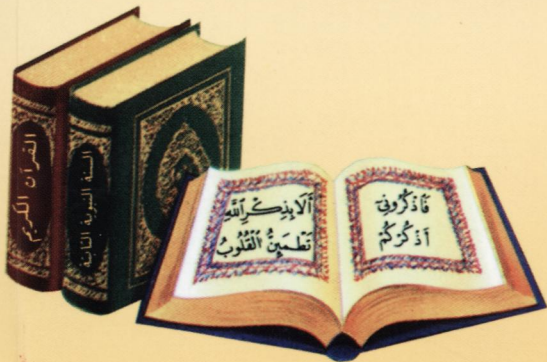 القرآن الكريم
السنة النبوية الثابتة
فَاذْكُرُونِيٓ
أَذْكُرْكُمْ
أَلَا بِذِكْرِ اللَّهِ
تَطْمَئِنُّ الْقُلُوبُ